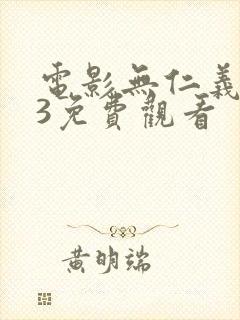 電影無仁義
3免費觀看
黃明端